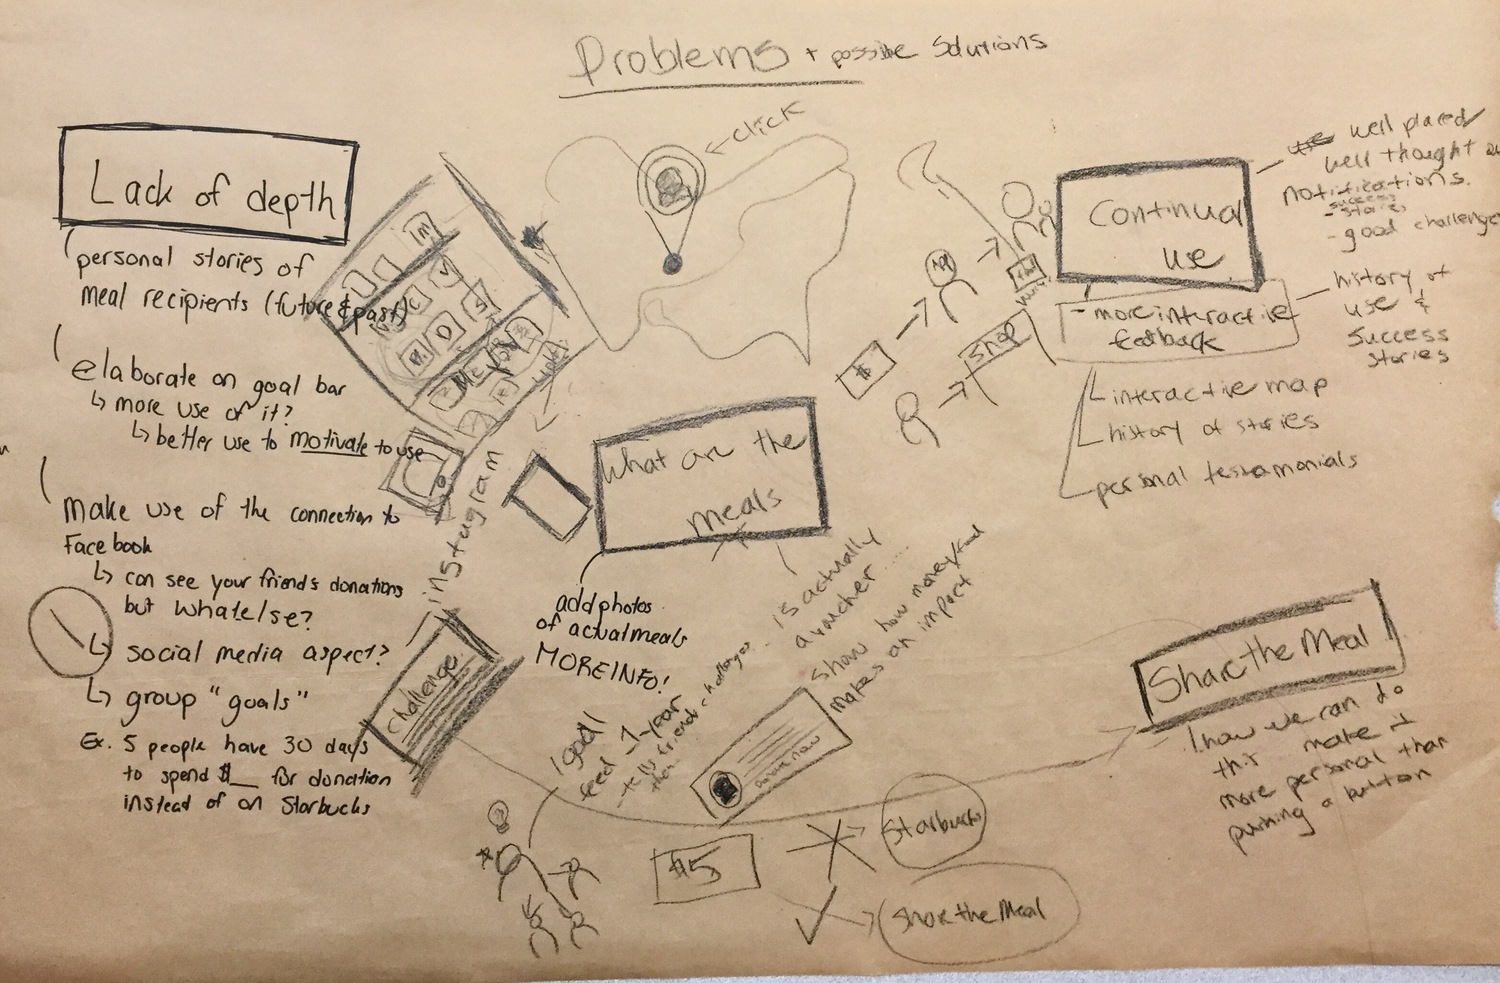 Problems + possible Solutions
Lack of depth
personal stories of
meal recipients (future & past)
elaborate on goal bar
↳ more use of it?
↳ better use to motivate to use
Make use of the connection to
Facebook
↳ can see your friends donations
but what else?
↳ social media aspect?
↳ group "goals"
Ex. 5 people have 30 days
to spend $__ for donation
instead of on Starbucks
instagram
Challenge
← click
What are the
meals
add photos
of actual meals
MORE INFO!
is actually
a voucher....
show how money/food
makes an impact
1 goal
feed 1-year
donate now
$5
Starbucks
Share the Meal
$
Shop
Continual
use
well placed
well thought
notifications.
- success
stories
- good challenges
- more interactive
feedback
history of
use &
success
stories
interactive map
history of stories
personal testamonials
Share the Meal
how we can do
this make it
more personal than
pushing a button